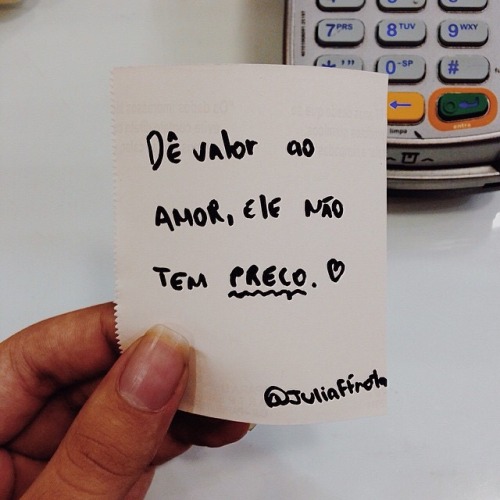 7 PRS
8 TUV
9 WXY
* ' "
0 -SP
#
limpa
entra
DÊ valor ao
AMOR, ELE NÃO
TEM PREÇO. ♡